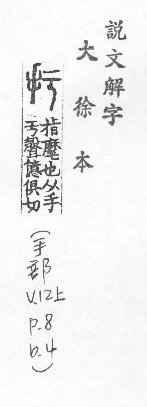 説文解字
大徐本
扜
指麾也从手
亏聲億俱切
(手部
V.12上
P.8
b.4)